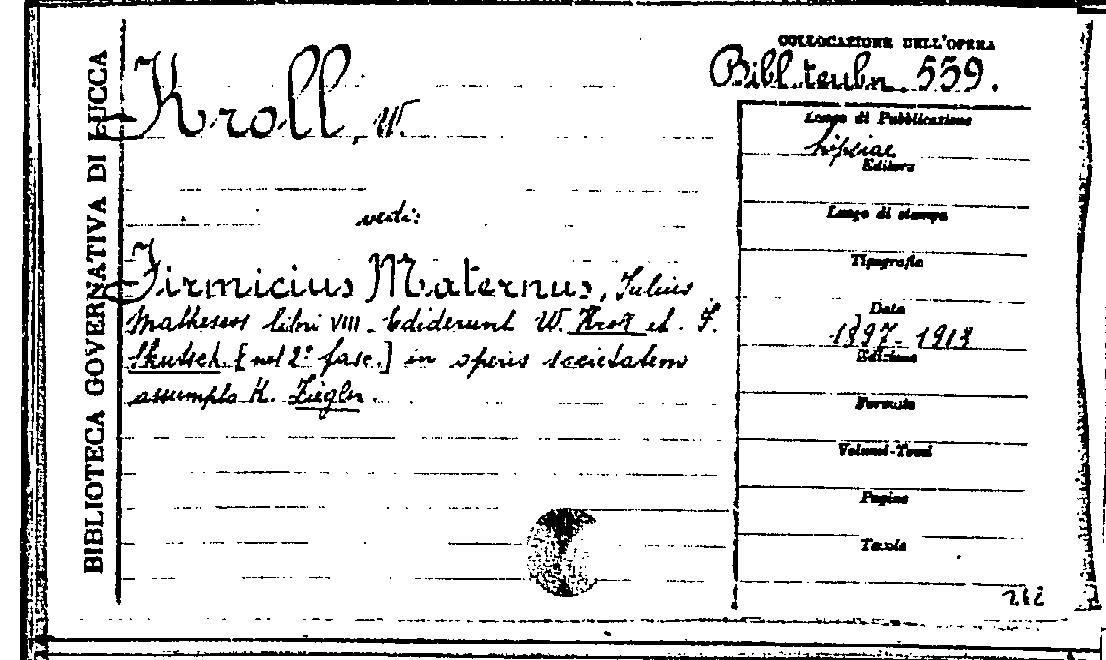 BIBLIOTECA GOVERNATIVA DI LUCCA
Kroll, W.
vedi:
Firmicius Maternus, Julius
Matheseos libri VIII. Ediderunt W. Kroll et. F.
Skutsch. [nel 2° fasc.] in operis societatem
assumpto K. Ziegler.
COLLOCAZIONE DELL'OPERA
Bibl. teubn. 559.
Luogo di Pubblicazione
Lipsiae
Editore
Luogo di stampa
Tipografia
Data
1897-1913
Edizione
Formato
Volumi-Tomi
Pagine
Tavole